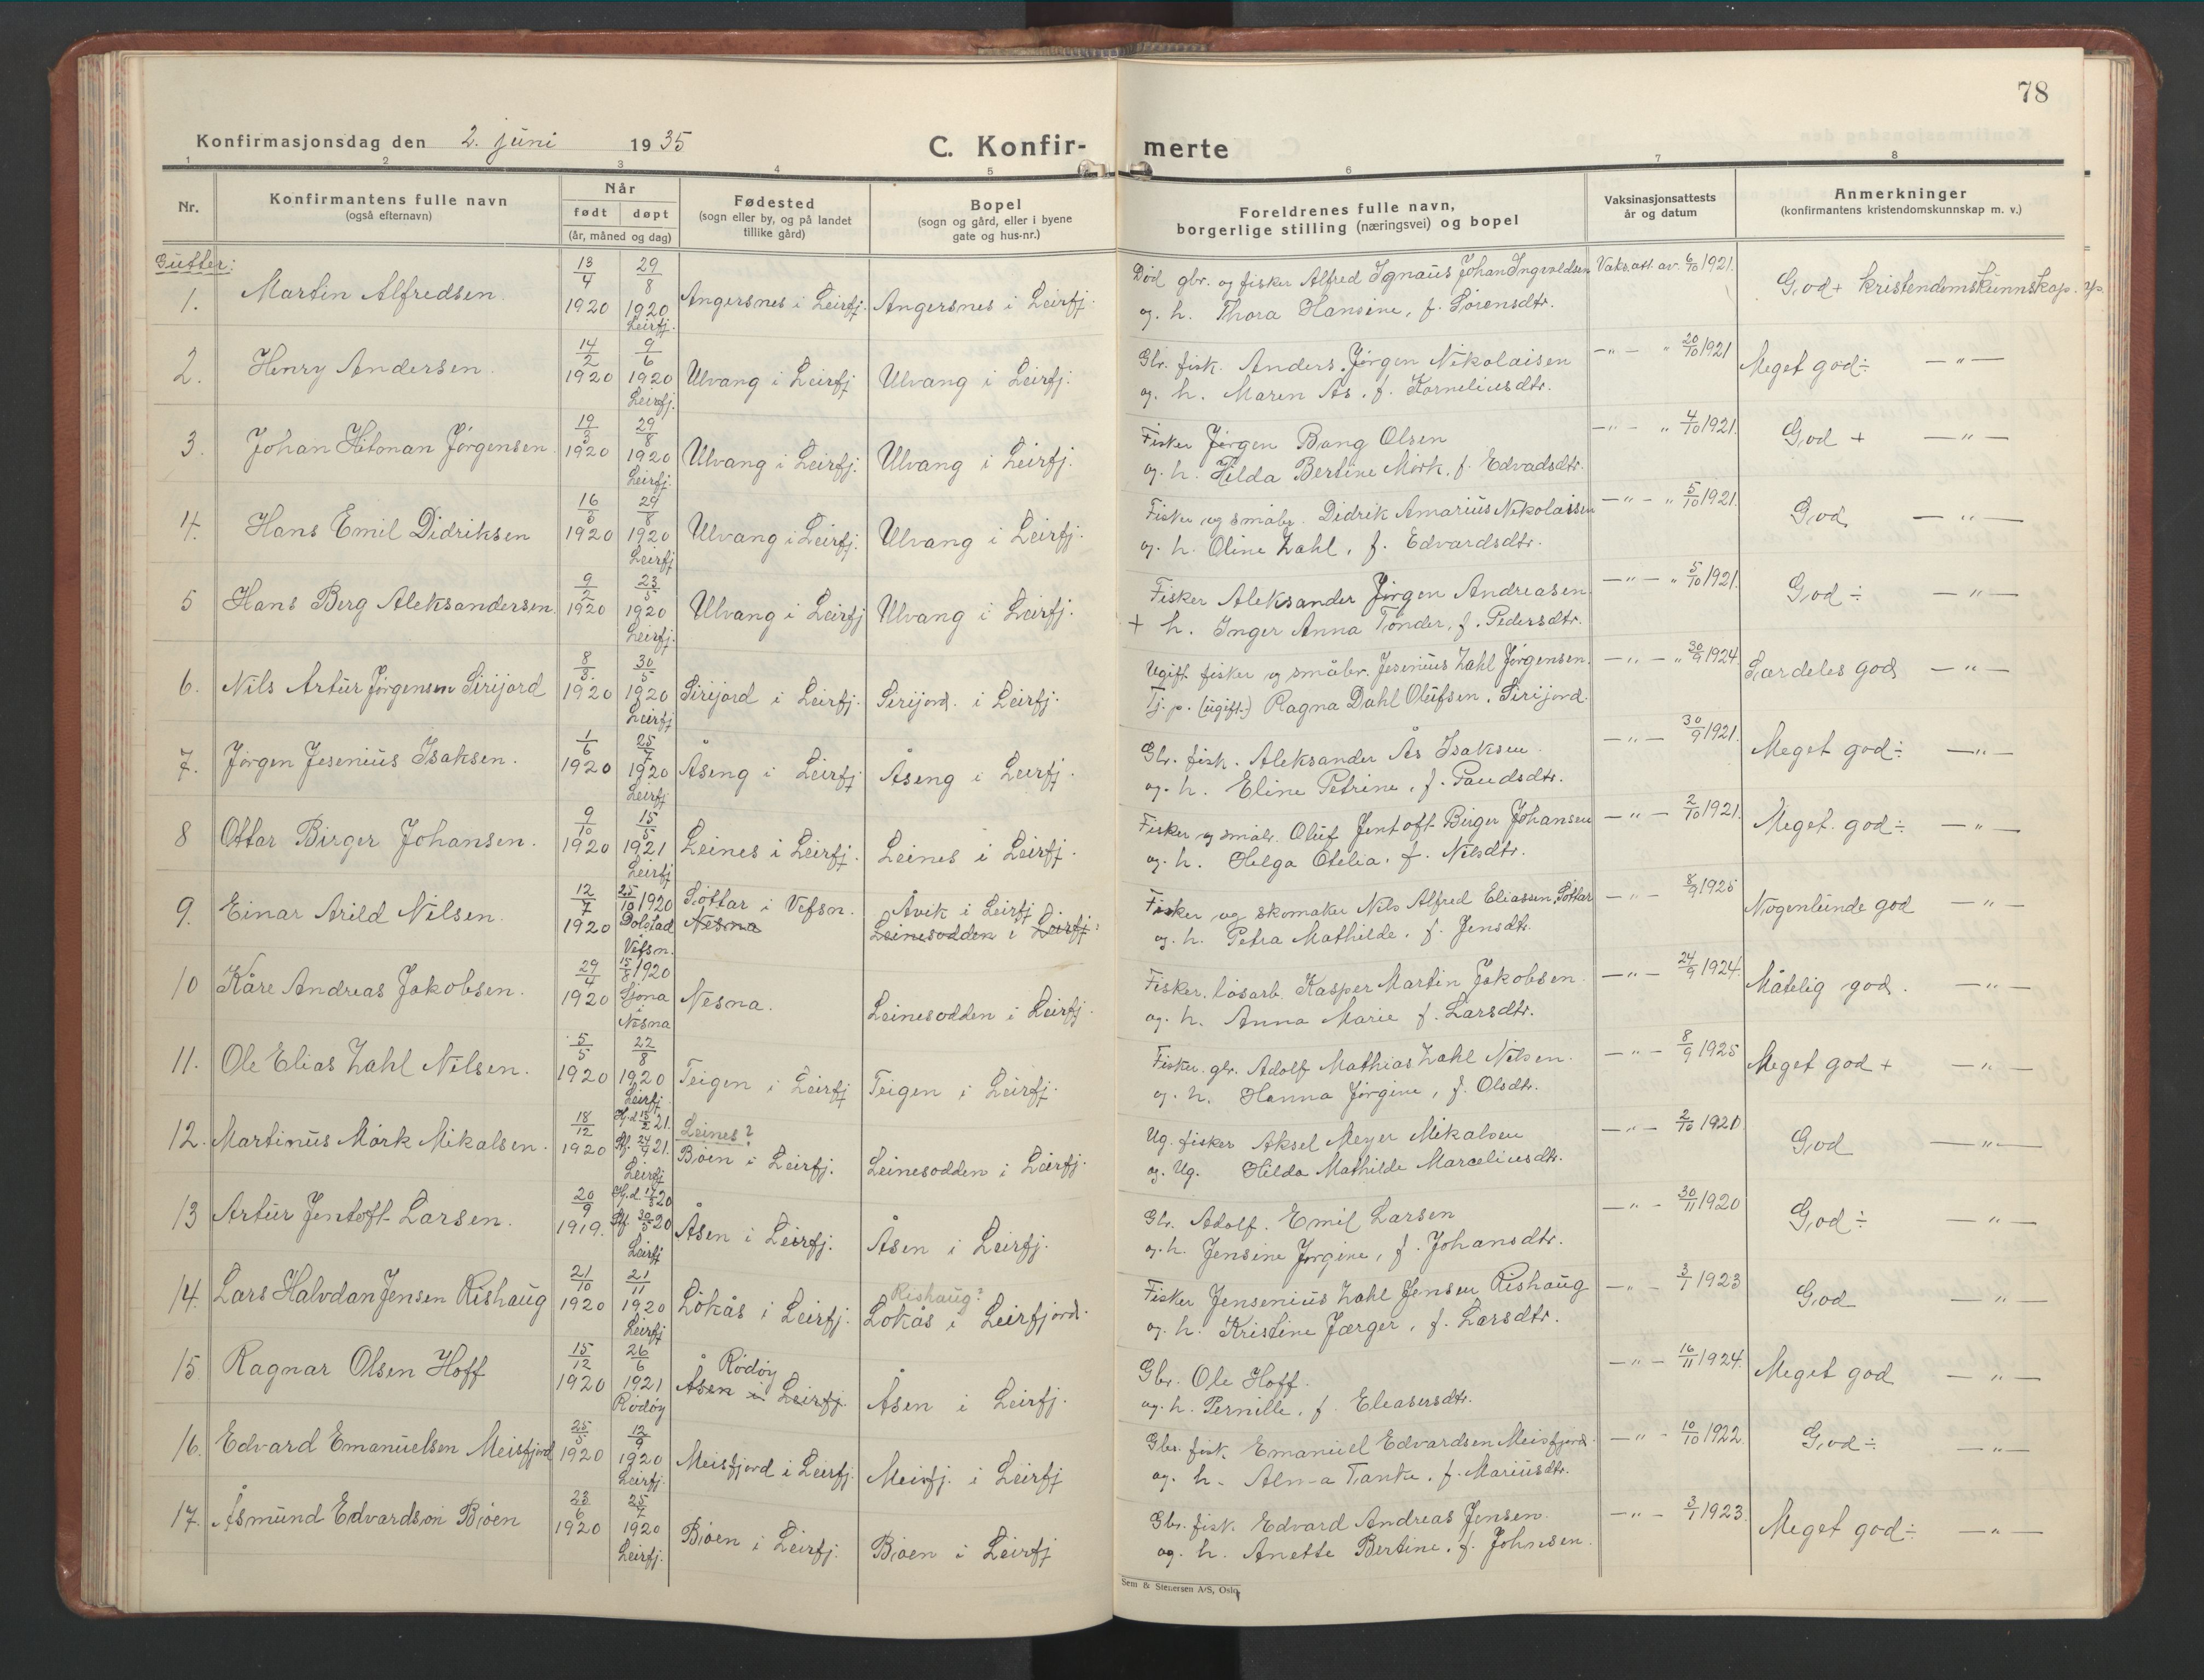 78
Konfirmasjonsdag den 2. juni 1935
C. Konfir-
merte
1 2 3 4 5 6 7 8
Nr.
Konfirmantens fulle navn
(også efternavn)
Når
født døpt
(år, måned og dag)
Fødested
(sogn eller by, og på landet
tillike gård)
Bopel
(sogn og gård, eller i byene
gate og hus-nr.)
Foreldrenes fulle navn,
borgerlige stilling (næringsvei) og bopel
Vaksinasjonsattests
år og datum
Anmerkninger
(konfirmantens kristendomskunnskap m. v.)
Gutter:
1. Martin Alfredsen. 13/4 1920 29/8 1920 Leirfj. Angersnes i Leirfj. Angersnes i Leirfj.
Død gbr. og fisker Alfred Ignaus Johan Ingvaldsen Vaks.att. av 6/10 1921. God + kristendomskunnskap.
og. h. Thora Hansine, f. Sørensdtr.
2. Henry Andersen. 14/2 1920 9/6 1920 Leirfj. Ulvang i Leirfj. Ulvang i Leirfj.
Gbr. fisk. Anders Jørgen Nikolaisen —"— " 20/10 1921 Meget god ÷ —"—
og. h. Maren Ås. f. Korneliusdtr.
3. Johan Hitman Jørgensen. 19/3 1920 29/8 1920 Leirfj. Ulvang i Leirfj. Ulvang i Leirfj.
Fisker Jørgen Bang Olsen —"— " 4/10 1921. God + —"—
og. h. Hilda Bertine Mørk, f. Edvadsdtr.
4. Hans Emil Didriksen 16/6 1920 29/8 1920 Leirfj Ulvang i Leirfj. Ulvang i Leirfj.
Fisker og småbr. Didrik Amarius Nikolaissen —"— " 5/10 1921. God —"—
og. h. Oline Zahl, f. Edvardsdtr.
5 Hans Berg Aleksandersen 9/2 1920 23/5 1920 Leirfj. Ulvang i Leirfj Ulvang i Leirfj.
Fisker Aleksander Jørgen Andreasen —"— " 5/10 1921. God ÷ —"—
+ h. Inger Anna Tønder, f. Pedersdtr.
6. Nils Artur Jørgensen Sirijord 8/3 1920 30/5 1920 Leirfj Sirijord i Leirfj. Sirijord. i Leirfj.
Ugift fisker og småbr. Jesenius Zahl Jørgensen. —"— " 30/9 1924. Særdeles god —"—
Tj. p. (ugift.) Ragna Dahl Olufsen. Sirijord.
7. Jørgen Jesenius Isaksen. 1/6 1920 25/7 1920 Leirfj Åseng i Leirfj Åseng i Leirfj.
Gbr. fisk. Aleksander Ås Isaksen —"— 30/9 1921. Meget god ÷ —"—
og. h. Eline Petrine, f. Paulsdtr.
8 Ottar Birger Johansen. 9/10 1920 15/5 1921 Leirfj Leines i Leirfj. Leines i Leirfj.
Fisker og småbr. Oluf Jentoft Birger Johansen —"— 2/10 1921. Meget god ÷ —"—
og. h. Helga Otelia. f. Nilsdtr.
9. Einar Arild Nilsen. 12/7 1920 25/10 1920 Dolstad Vefsn. Søttar i Vefsn. Nesna Åvik i Leirfj Leinesodden i Leirfj.
Fisker og skomaker Nils Alfred Eliassen Søttar —"— 8/9 1925 Nogenlunde god —"—
og. h. Petra Mathilde. f. Jensdtr.
10 Kåre Andreas Jakobsen. 29/4 1920 15/8 1920 Sjona i Nesna Nesna. Leinesodden i Leirfj.
Fisker. løsarb. Kasper Martin Jakobsen. —"— 24/9 1924. Måtelig god. —"—
og. h. Anna Marie f. Larsdtr.
11. Ole Elias Zahl Nilsen. 5/5 1920 22/8 1920 Leirfj. Teigen i Leirfj Teigen i Leirfj.
Fisker. gbr. Adolf Mathias Zahl Nilsen. —"— 8/9 1925 Meget god + —"—
og. h. Hanna Jørgine, f. Olsdtr.
12. Martinus Mørk Mikalsen. 18/12 1920 Hj.d. 13/2 21. Stf. 24/4 21. Leirfj Leines? Bøen i Leirfj. Leinesodden i Leirfj.
Ug. fisker Aksel Meyer Mikalsen —"— 2/10 1920. God —"—
og. Ug. Hilda Mathilde Marceliusdtr.
13 Artur Jentoft Larsen. 20/9 1919. Hj.d. 17/3 20 Stf. 30/5 20 Leirfj Åsen i Leirfj. Åsen i Leirfj.
Gbr. Adolf. Emil Larsen —"— 30/11 1920 God ÷ —"—
og. h. Jensine Jørgine, f. Johansdtr.
14. Lars Halvdan Jensen Rishaug 21/10 1920 21/11 1920 Leirfj Løkås i Leirfj. Rishaug? Løkås i Leirfjord.
Fisker Jensenius Zahl Jensen Rishaug —"— 3/1 1923 God —"—
og. h. Kristine Jæger, f. Larsdtr.
15 Ragnar Olsen Hoff 15/12 1920 26/6 1921 Rødøy Rødøy Åsen i Leirfj. Åsen i Leirfj.
Gbr. Ole Hoff. —"— 16/11 1924. Meget god —"—
og. h. Pernille, f. Eleasersdtr.
16. Edvard Emanuelsen Meisfjord 25/5 1920 12/9 1920 Leirfj. Meisfjord i Leirfj. Meisfj. i Leirfj
Gbr. fisk. Emanuel Edvardsen Meisfjord. —"— 10/10 1922. God ÷ —"—
og. h. Alma Tanke, f. Mariusdtr.
17. Åsmund Edvardson Bjøen 23/6 1920 25/7 1920 Leirfj. Bjøen i Leirfj. Bjøen i Leirfj
Gbr. fisk. Edvard Andreas Jensen. —"— 3/1 1923. Meget god ÷ —"—
og. h. Anette Bertine, f. Johnsen.
Sem & Stenersen A/S, Oslo